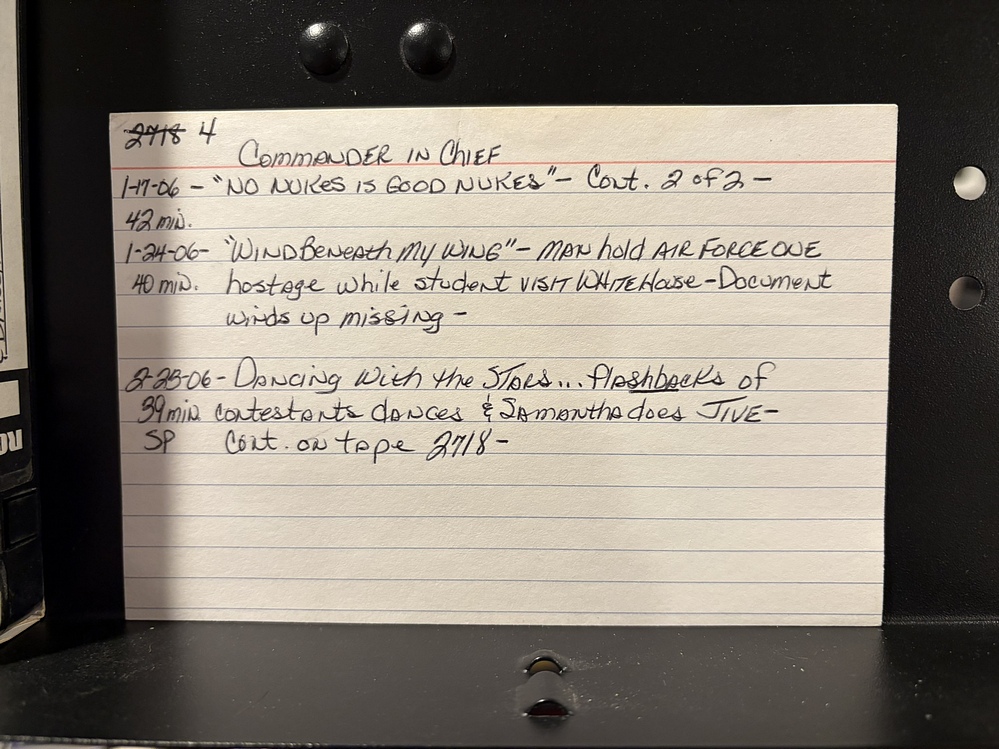 2718 4
COMMANDER IN CHIEF
1-17-06 - "NO NUKES IS GOOD NUKES" - Cont. 2 of 2 -
42 min.
1-24-06- "WIND BENEATH MY WING" - MAN hold AIR FORCE ONE
40 min. hostage while student VISIT WHITE House - Document
winds up missing -
2-23-06 - DANCING With the STARS... flashbacks of
39 min. contestants dances & SAMANTHA does JIVE-
SP Cont. on tape 2718 -